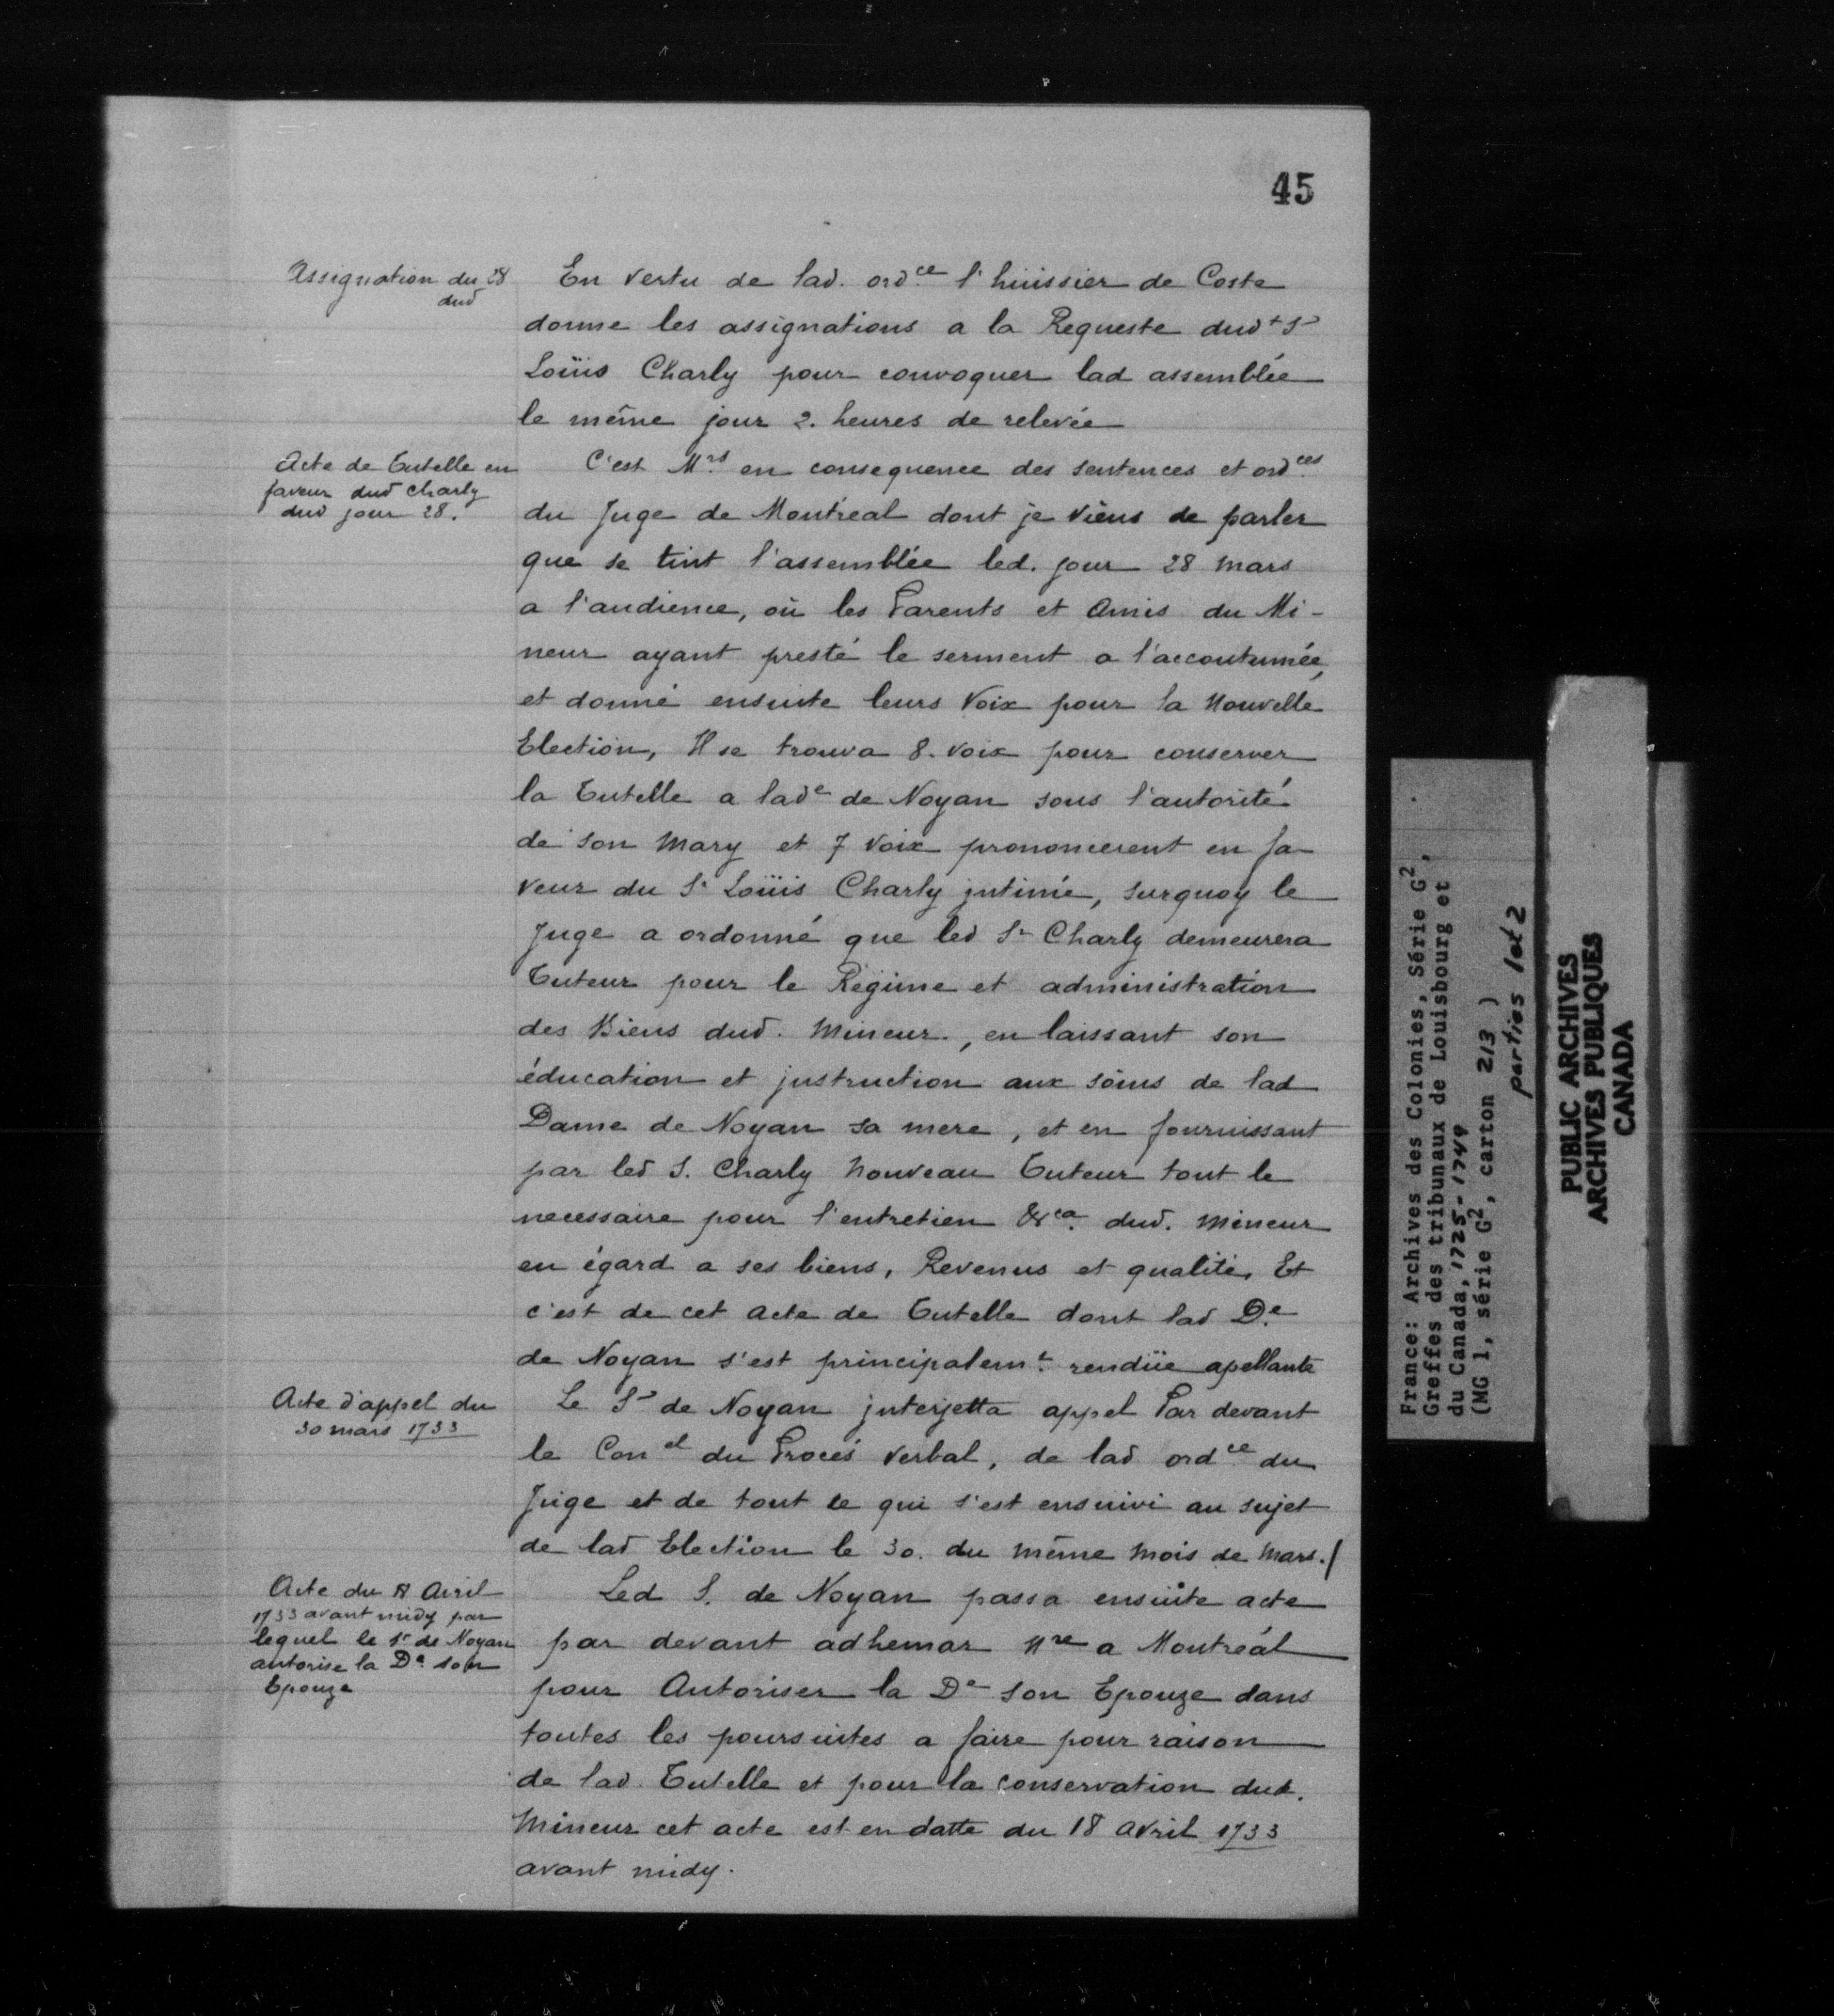 45
Assignation du 28
dud
En vertu de lad. ordce l'huissier de Coste
donne les assignations a la Requeste dudt Sr
Loüis Charly pour convoquer lad assemblée
le même jour 2. heures de relevée
Acte de Tutelle en
faveur dud Charly
dud jour 28.
C'est Mrs en consequence des sentences et ordces
du Juge de Montreal dont je viens de parler
que se tint l'assemblée led. jour 28 mars
a l'audience, où les Parents et Amis du Mi-
neur ayant presté le serment a l'accoutumée,
et donné ensuite leurs Voix pour la Nouvelle
Election, Il se trouva 8. voix pour conserver
la Tutelle a lade de Noyan sous l'autorité
de son Mary et 7 voix prononcerent en fa-
veur du Sr Loüis Charly jntimé, surquoy le
Juge a ordonné que led Sr Charly demeurera
Tuteur pour le Régime et administration
des Biens dud. Mineur., en laissant son
éducation et jnstruction aux soins de lad
Dame de Noyan sa mere, et en fournissant
par led S. Charly Nouveau Tuteur tout le
necessaire pour l'entretien &ca. dud. Mineur
eu égard a ses biens, Revenus et qualité, Et
c'est de cet Acte de Tutelle dont lad De.
de Noyan s'est principalemt. rendüe apellante
Acte d'appel du
30 mars 1733
Le Sr de Noyan jnterjetta appel Par devant
le Conel du Procés verbal, de lad ordce du
Juge et de tout ce qui s'est ensuivi au sujet
de lad Election le 30. du même Mois de Mars./
Acte du 18 Avril
1733 avant midy par
lequel le Sr de Noyan
autorise la De. son
Epouze
Led S. de Noyan passa ensuite acte
par devant adhemar Nre a Montréal
pour Autoriser la De son Epouze dans
toutes les poursuites a faire pour raison
de lad. Tutelle et pour la conservation dud.
Mineur cet acte est en datte du 18 Avril 1733
avant midy.
France: Archives des Colonies, Série G2,
Greffes des tribunaux de Louisbourg et
du Canada, 1725-1749
(MG 1, série G2, carton 213 )
parties 1et 2
PUBLIC ARCHIVES
ARCHIVES PUBLIQUES
CANADA